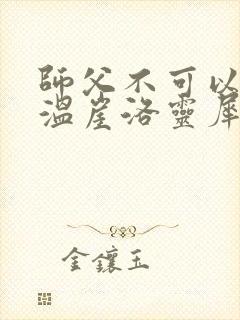 師父不可以
溫崖洛靈犀
金鑲玉